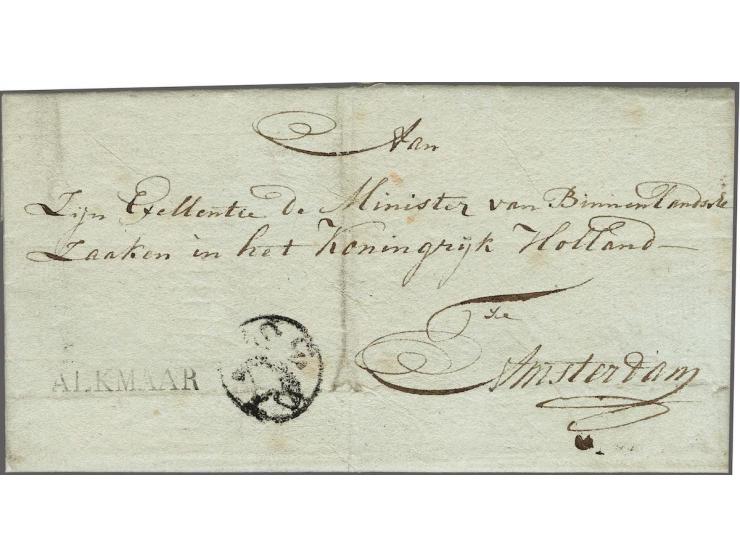 Aan
Zijn Exellentie de Minister van Binnenlandsche
Zaaken in het Koningrijk Holland
te
Amsterdam
ALKMAAR